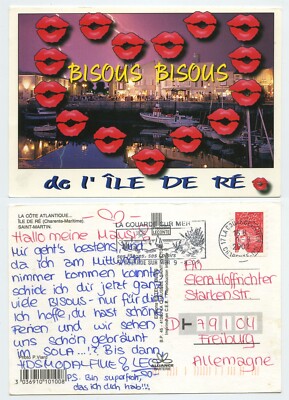 BISOUS BISOUS
de l'ÎLE DE RÉ
LA CÔTE ATLANTIQUE...
ÎLE DE RÉ (Charente-Maritime)
SAINT-MARTIN.
Hallo meine
Mir geht's bestens, und
da ich am Mittwoch
nimmer kommen konnte
schick ich dir jetzt ganz
viele BISOUS - nur für dich!
Ich hoffe, du hast schöne
Ferien und wir sehen
uns schön gebräunt
im SOLA...!? Bis dann
PS. Bin superfroh,
das ich dich hab!!!
3 036910 101008
LA COUARDE SUR MER
An
Elena Hoffrichter
Starkenstr.
D 79104
Freiburg
Allemagne